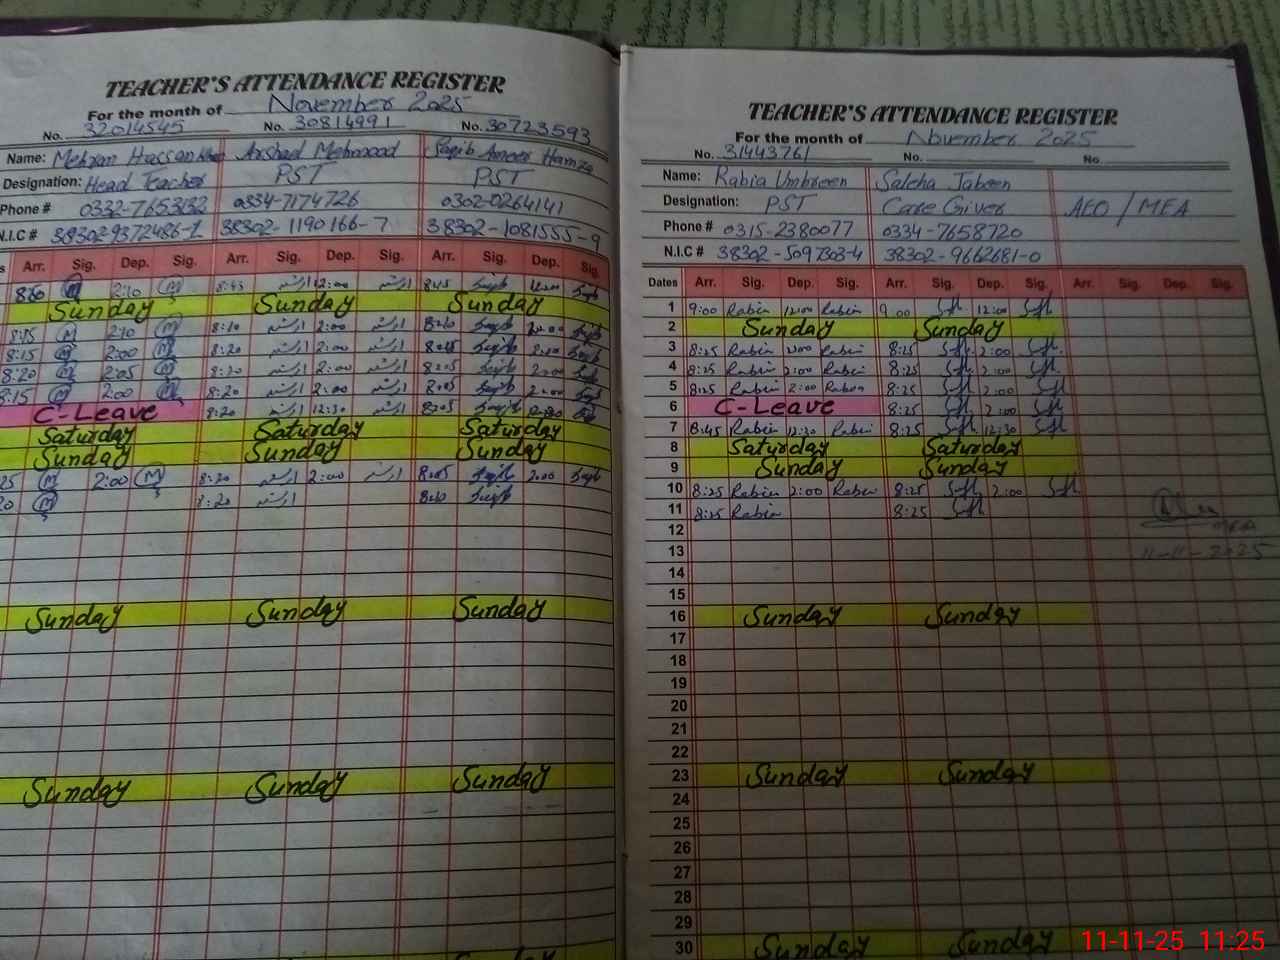 TEACHER'S ATTENDANCE REGISTER
For the month of November 2025
No. 32014545 No. 30814991 No. 30723593
Name: Mehran Hassan Khan Arshad Mehmood Saqib Ameer Hamza
Designation: Head Teacher PST PST
Phone # 0332-7653132 0334-7174726 0302-0264141
N.I.C # 38302-9372486-1 38302-1190166-7 38302-1081555-9
s Arr. Sig. Dep. Sig. Arr. Sig. Dep. Sig. Arr. Sig. Dep. Sig.
M 2:10 M 8:45 ارشد 12:00 ارشد 8:45 Saqib Saqib
Sunday Sunday Sunday
8:15 M 2:10 M 8:20 ارشد 2:00 ارشد 8:20 Saqib 2:00 Saqib
8:15 M 2:00 M 8:20 ارشد 2:00 ارشد Saqib 2:00 Saqib
8:20 M 2:05 M 8:20 ارشد 2:00 ارشد 8:05 Saqib 2:00 Saqib
8:15 M 2:00 M 8:20 ارشد 2:00 ارشد Saqib 2:00 Saqib
C-Leave 8:20 ارشد 12:30 ارشد 8:05 Saqib
Saturday Saturday Saturday
Sunday Sunday Sunday
25 M 2:00 M 8:20 ارشد 2:00 ارشد 8:05 Saqib 2:00 Saqib
20 M 8:20 ارشد 8:20 Saqib
Sunday Sunday Sunday
Sunday Sunday Sunday
TEACHER'S ATTENDANCE REGISTER
For the month of November 2025
No. 31443761 No. No.
Name: Rabia Umbreen Saleha Jabeen
Designation: PST Care Giver AEO / MEA
Phone # 0315-2380077 0334-7658720
N.I.C # 38302-5097303-4 38302-9662681-0
Dates Arr. Sig. Dep. Sig. Arr. Sig. Dep. Sig. Arr. Sig. Dep. Sig.
1 9:00 Rabia 12:00 Rabia 9:00 12:00
2 Sunday Sunday
3 8:25 Rabia 2:00 Rabia 8:25 2:00
4 8:25 Rabia 2:00 Rabia 8:25 2:00
5 8:25 Rabia 2:00 Rabia 8:25 2:00
6 C-Leave 8:25 2:00
7 8:45 Rabia 12:30 Rabia 8:25 12:30
8 Saturday Saturday
9 Sunday Sunday
10 8:25 Rabia 2:00 Rabia 8:25 2:00
11 8:25 Rabia 8:25
12 MEA
13 11-11-2025
14
15
16 Sunday Sunday
17
18
19
20
21
22
23 Sunday Sunday
24
25
26
27
28
29
30 Sunday Sunday
11-11-25 11:25